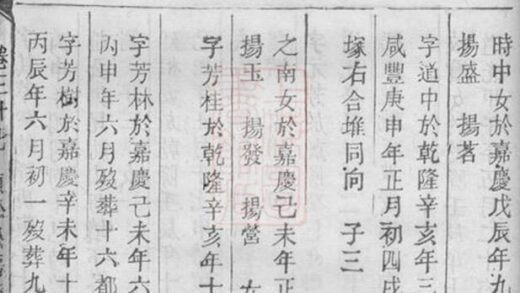 時中女於嘉慶戊辰年九
揚盛 揚茗
字道中於乾隆辛亥年三
咸豐庚申年正月初四戌
塚右合堆同向 子三
之南女於嘉慶己未年正
揚玉 揚發 揚營 女
字芳桂於乾隆辛亥年十
字芳林於嘉慶己未年六
丙申年六月歿葬十六都
字芳樹於嘉慶辛未年十
丙辰年六月初一歿葬九